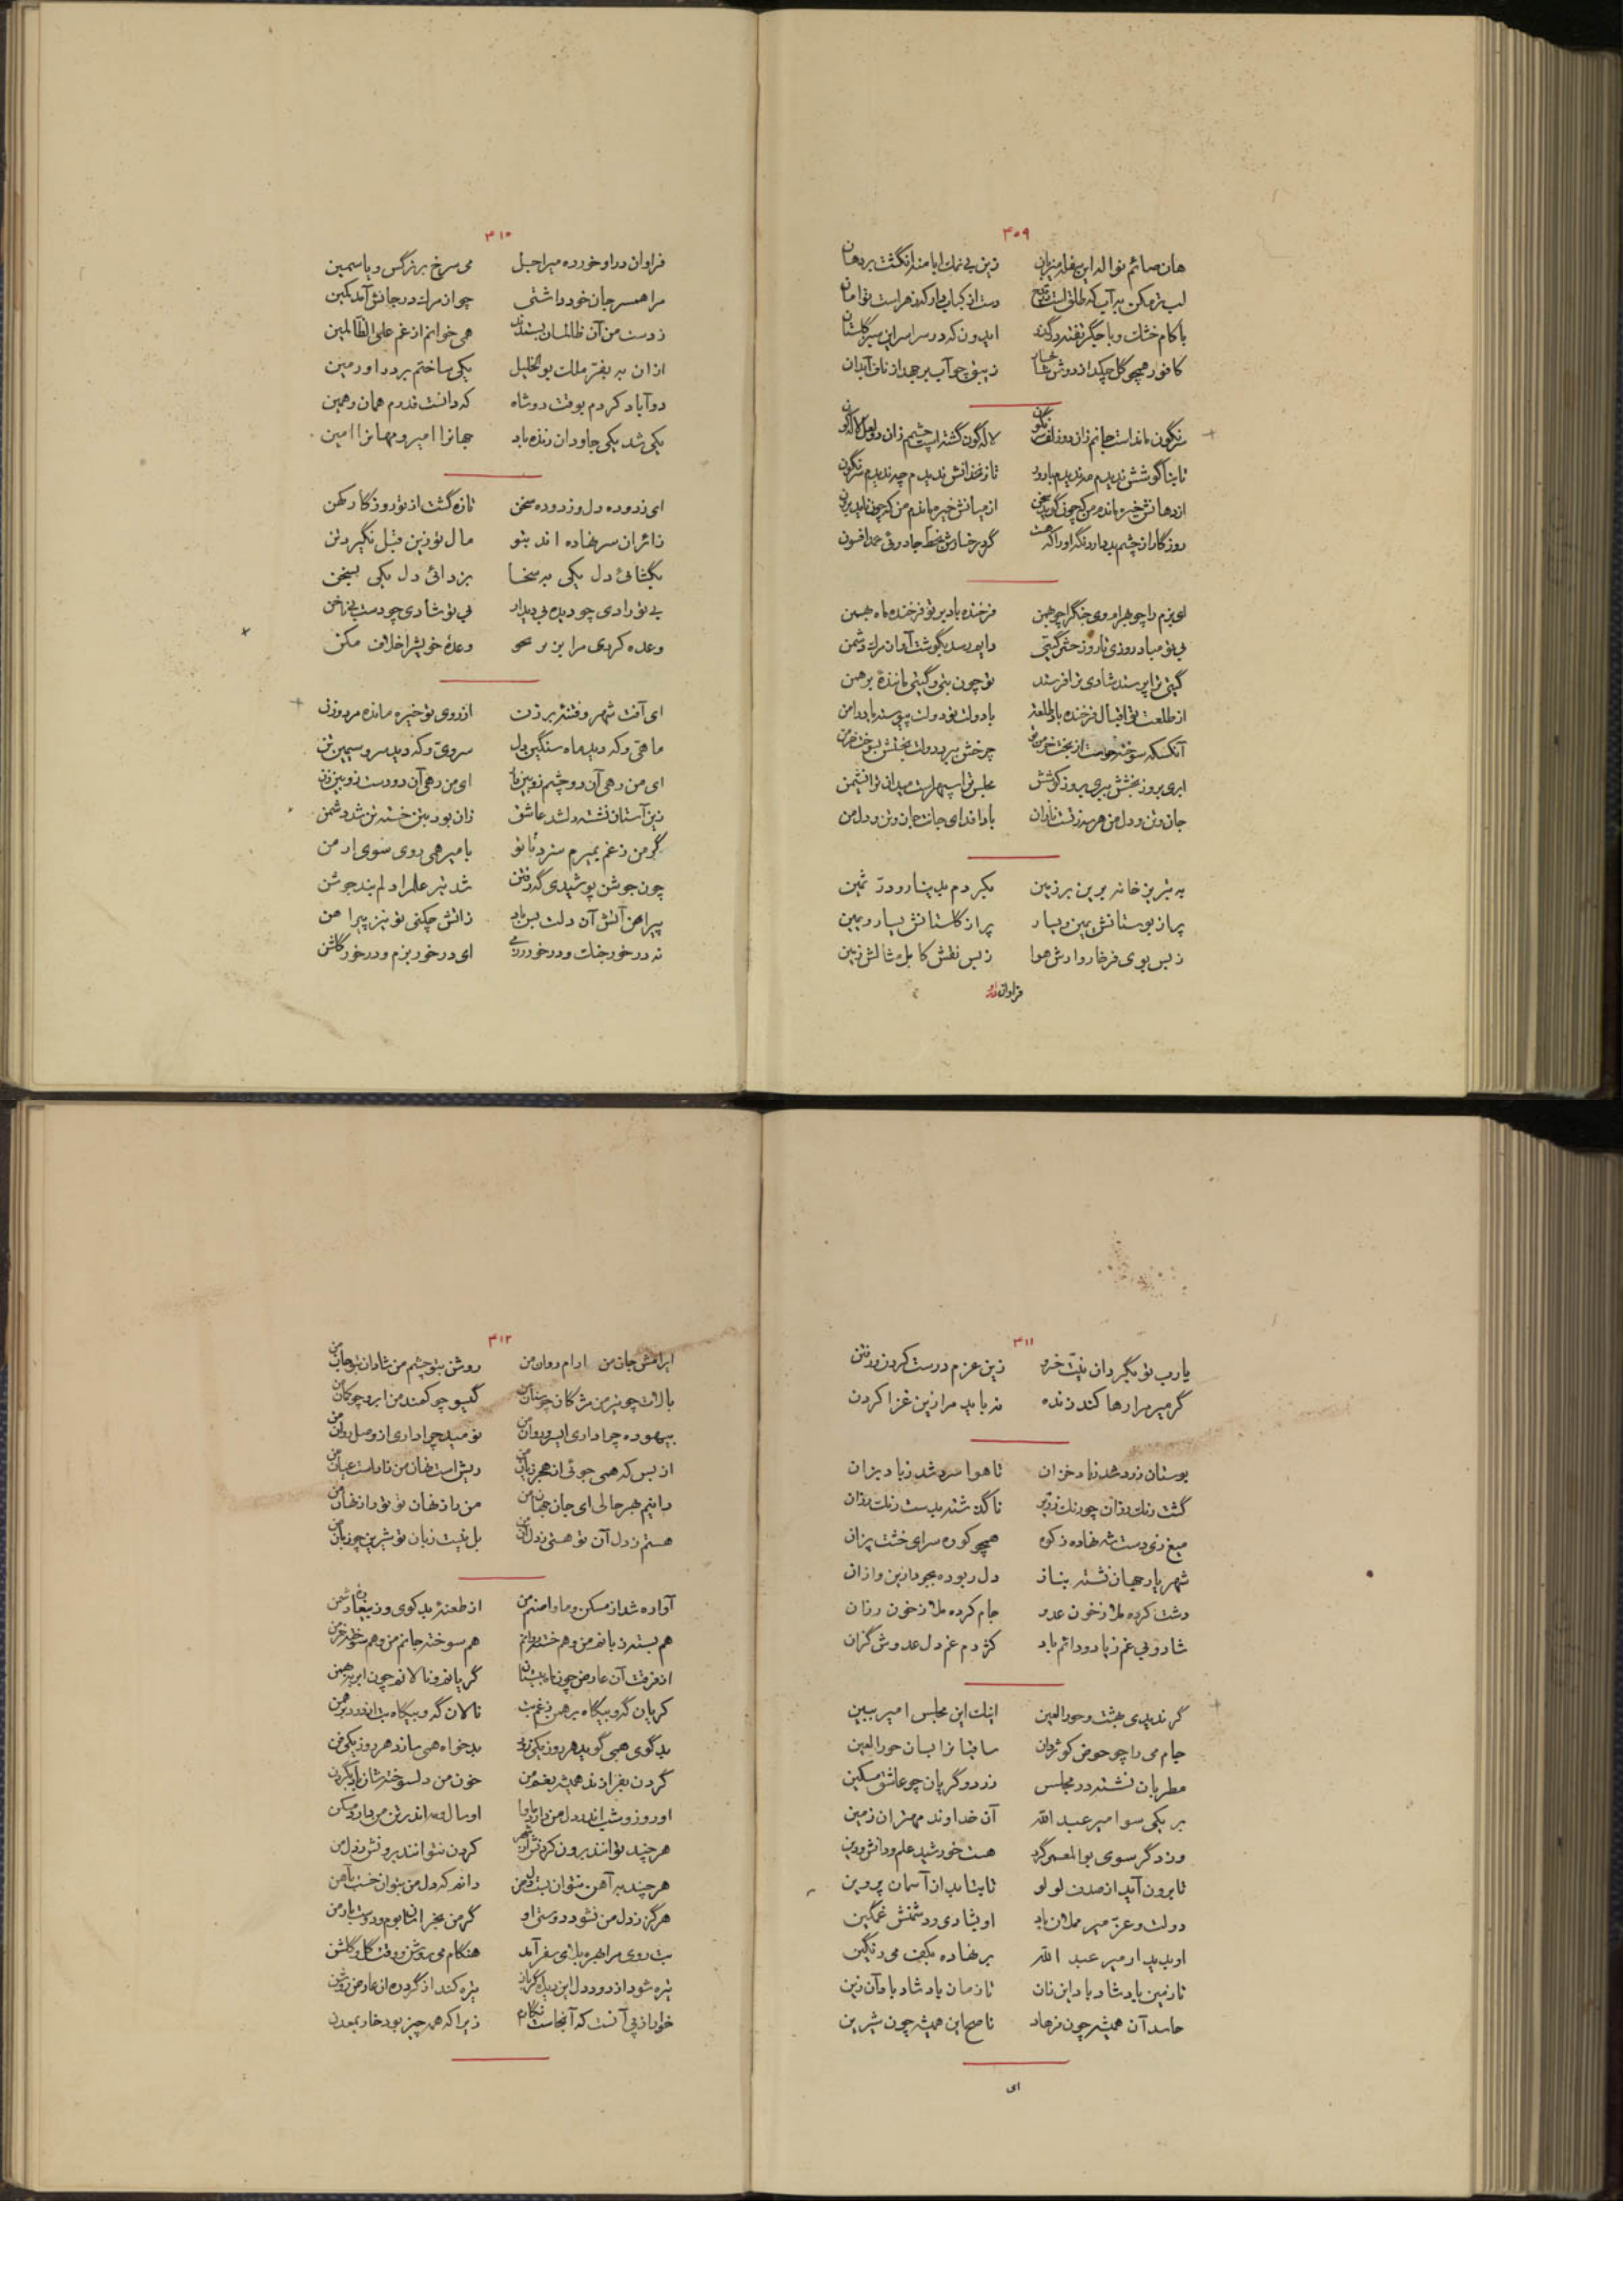 ۳۰۹
هان صائم نواله این سفله میزبان زین بی نمک ابا منه انگشت بر دهان
لب تر مکن به آب که طلق است در قدح دست از کباب دار که زهر است توامان
با کام خشک و با جگر تفته درگذر ایدون که در سراسر این سبز گلستان
کافور همچو گل چکد از دوش شاخسار زیبق چو آب بر جهد از ناف آبدان
سرنگون مانداست جانم زان دو زلف نگون لاله گون گشته است چشمم زان دو لعل لاله گون
تا بناگوشش ندیدم مه ندیدم بارور تا زنخدانش ندیدم چه ندیدم سرنگون
از دهانش خیره ماندم من که چون گوید سخن از میانش خیره ماندم من که چون ناید برون
روزگار از چشم بد دارد نگه او را که هست گرد رخسارش بخط جادوئی صد افسون
ای بزم را چو بهرام وی جنگ را چو بهمن فرخنده باد بر تو فرخنده ماه بهمن
بی تو مباد روزی تا روز حشر گیتی دایم رسد بگوشت آواز مرگ دشمن
گیتی ترا پرستد شادی ترا فرستد تو چون بتی و گیتی مانندهٔ برهمن
از طلعت تو اقبال فرخنده باد طلعت با دولت تو دولت پیوسته باد دامن
آنکسکه سوخته خواست از بخت خرمن تو چرخش ببرد دولت بختش بسوخت خرمن
ابری بروز بخشش ببری بروز کوشش مجلس ترا سپهر است میدان ترا نشیمن
جان و تن و دل من هر سه ز تست نازان بادا فدای جانت جان و تن و دل من
به تبریز خانه برین برزمین بکردم بدینار و در ثمین
پر از بوستانش یمین و یسار پر از گلستانش یسار و یمین
ز بس بوی فرخار وارش هوا ز بس نقش کابل مثالش زمین
فراوان در او
۳۱۰
فراوان در او خورده میر اجل می سرخ بر نرگس و یاسمین
مرا همسر جان خود داشتی چو از مرگ در جانش آمد کمین
ز دست من آن ظالمان بستدند همی خوانم از غم علی الظالمین
از ان به بفتر ملک بوالخلیل یکی ساختم بر در او رمین
دو آباد کردم بوقت دو شاه که دانست قدرم همان و همین
یکی شد یکی جاودان زنده باد جهانرا امیر و مهانرا امین
ای زدوده دل و زدوده سخن تازه گشت از تو روزگار کهن
زائران سر نهاده اند بتو مال تو زین قبل نگیرد تن
بگشائی دل یکی به سخا بزدائی دل یکی بسخن
بی تو رادی چو دیده بی دیدار بی تو شادی چو دست بی ناخن
وعده کردی مرا بر وعدهٔ خویش را خلاف مکن
ای آفت شهر و فتنهٔ برزن از روی تو خیره مانده مرد و زن
ماهی و که دید ماه سنگین دل سروی و که دید سرو سیمین تن
ای من رهی آن دو چشم زوبین ای من رهی آن دو دست زوبین زن
زین آستان نشسته دلشد عاشق زان بود بتن خسته تن شد دشمن
گر من ز غم بمیرم سزد تا تو با میر همی روی سوی ارمن
چون جوشن پوشیدی گه رفتن شد تیر علم را دلم بند جوشن
پیراهن آتش آن دلت بس باد ز آتش چکنی تو نیز پیراهن
نه در خور جنگ و در خور رزمی ای در خور بزم و در خور گلشن
۳۱۱
یارب تو بگردان نیت خسرو زین عزم درست کردن و رفتن
گر میر مرا رها کند زنده نه باید مرا زین غزا کردن
بوستان زرد شد ز باد خزان تا هوا سرد شد ز باد بزان
گشت رنگ رزان چو رنگ زریر تا گذشته بدست رنگ رزان
میغ زی دست شه نهاده ز کوه همچو کوره سرای خشت پزان
شهریار جهان نشسته بناز دل ربوده بجود ازین و ازان
دشت کرده ملا ز خون عدو جام کرده ملا ز خون رزان
شاد و بی غم زیاد و دائم باد کژدم غم دل عدوش گزان
گر ندیدی بهشت و حور العین اینک این مجلس امیر ببین
جام می را چو حوض کوثر دان ساقیانرا بسان حور العین
مطربان نشسته در مجلس زرد و گریان چو عاشق مسکین
بر یکی سو امیر عبد الله آن خداوند مهتران زمین
وز دگر سوی بوالمعمر گرد هست خورشید علم و دانش و دین
تا برون آید از صدف لولو تا بتابد از آسمان پروین
دولت و عز میر مملان باد او بشادی و دشمنش غمگین
او بدیدار میر عبد الله بر نهاده بکف می رنگین
تا زمین باد شاد باد این زان تا زمان باد شاد باد آن زین
حاسد آن همیشه چون فرهاد ناصح این همیشه چون شیرین
ای
۳۱۲
ایرامش جان من ارام روان من روشن بتو چشم من شادان بتو جان من
بالات چو تیر من مژگان چو سنان من گیسو چو کمند من ابرو چو کمان من
بیهوده چرا داری ای سرو روان من نومید چرا داری از وصل روان من
از بس که همی جوئی از هجر زیان من ریش است نهان من زار است عیان من
دانیم بهر حالی ای جان جهان من من راز نهان تو تو راز نهان من
هستم ز دل آن تو هستی ز دل آن من بل نیست زبان تو شیرین چو زبان من
آواره شد از مسکن و ماوا صنم من از طعنهٔ بد گوی و ز بیغاره دشمن
هم بسته زبانم من و هم خسته روانم هم سوخته جانم من و هم سوخته خرمن
از فرقت آن عارض چون ماه گریانم و نالانم چون ابر بهمن
گریان گه و بیگاه برهمن ز غم بت نالان گه و بیگاه بت از درد برهمن
بد گوی همی گوید هر روز یکی بدخواه همی سازد هر روز یکی فن
گردن بفرازند همیشه بغم من خون من دلسوخته شان باد بگردن
او روز و شب اندر دل من دارد ماوا او سال و مه اندر تن من دارد مسکن
هر چند توانند برون کردنش از شهر کردن نتوانند برونش ز دل من
هر چند به آهن نتوان بست دل من دانم که دل من بتوان خست بآهن
هرگز ز دل من نشود دوستی او گر من بخراسان بوم و دوست بارمن
بت روی مرا بهره بلای سفر آمد هنگام می روشن و وقت گل و گلشن
تیره شود از درد دل این دیده گریان تیره کند از گرد ره آن عارض روشن
خوار از پی آنست که آنجاست زیرا که همه چیز بود خوار بمعدن